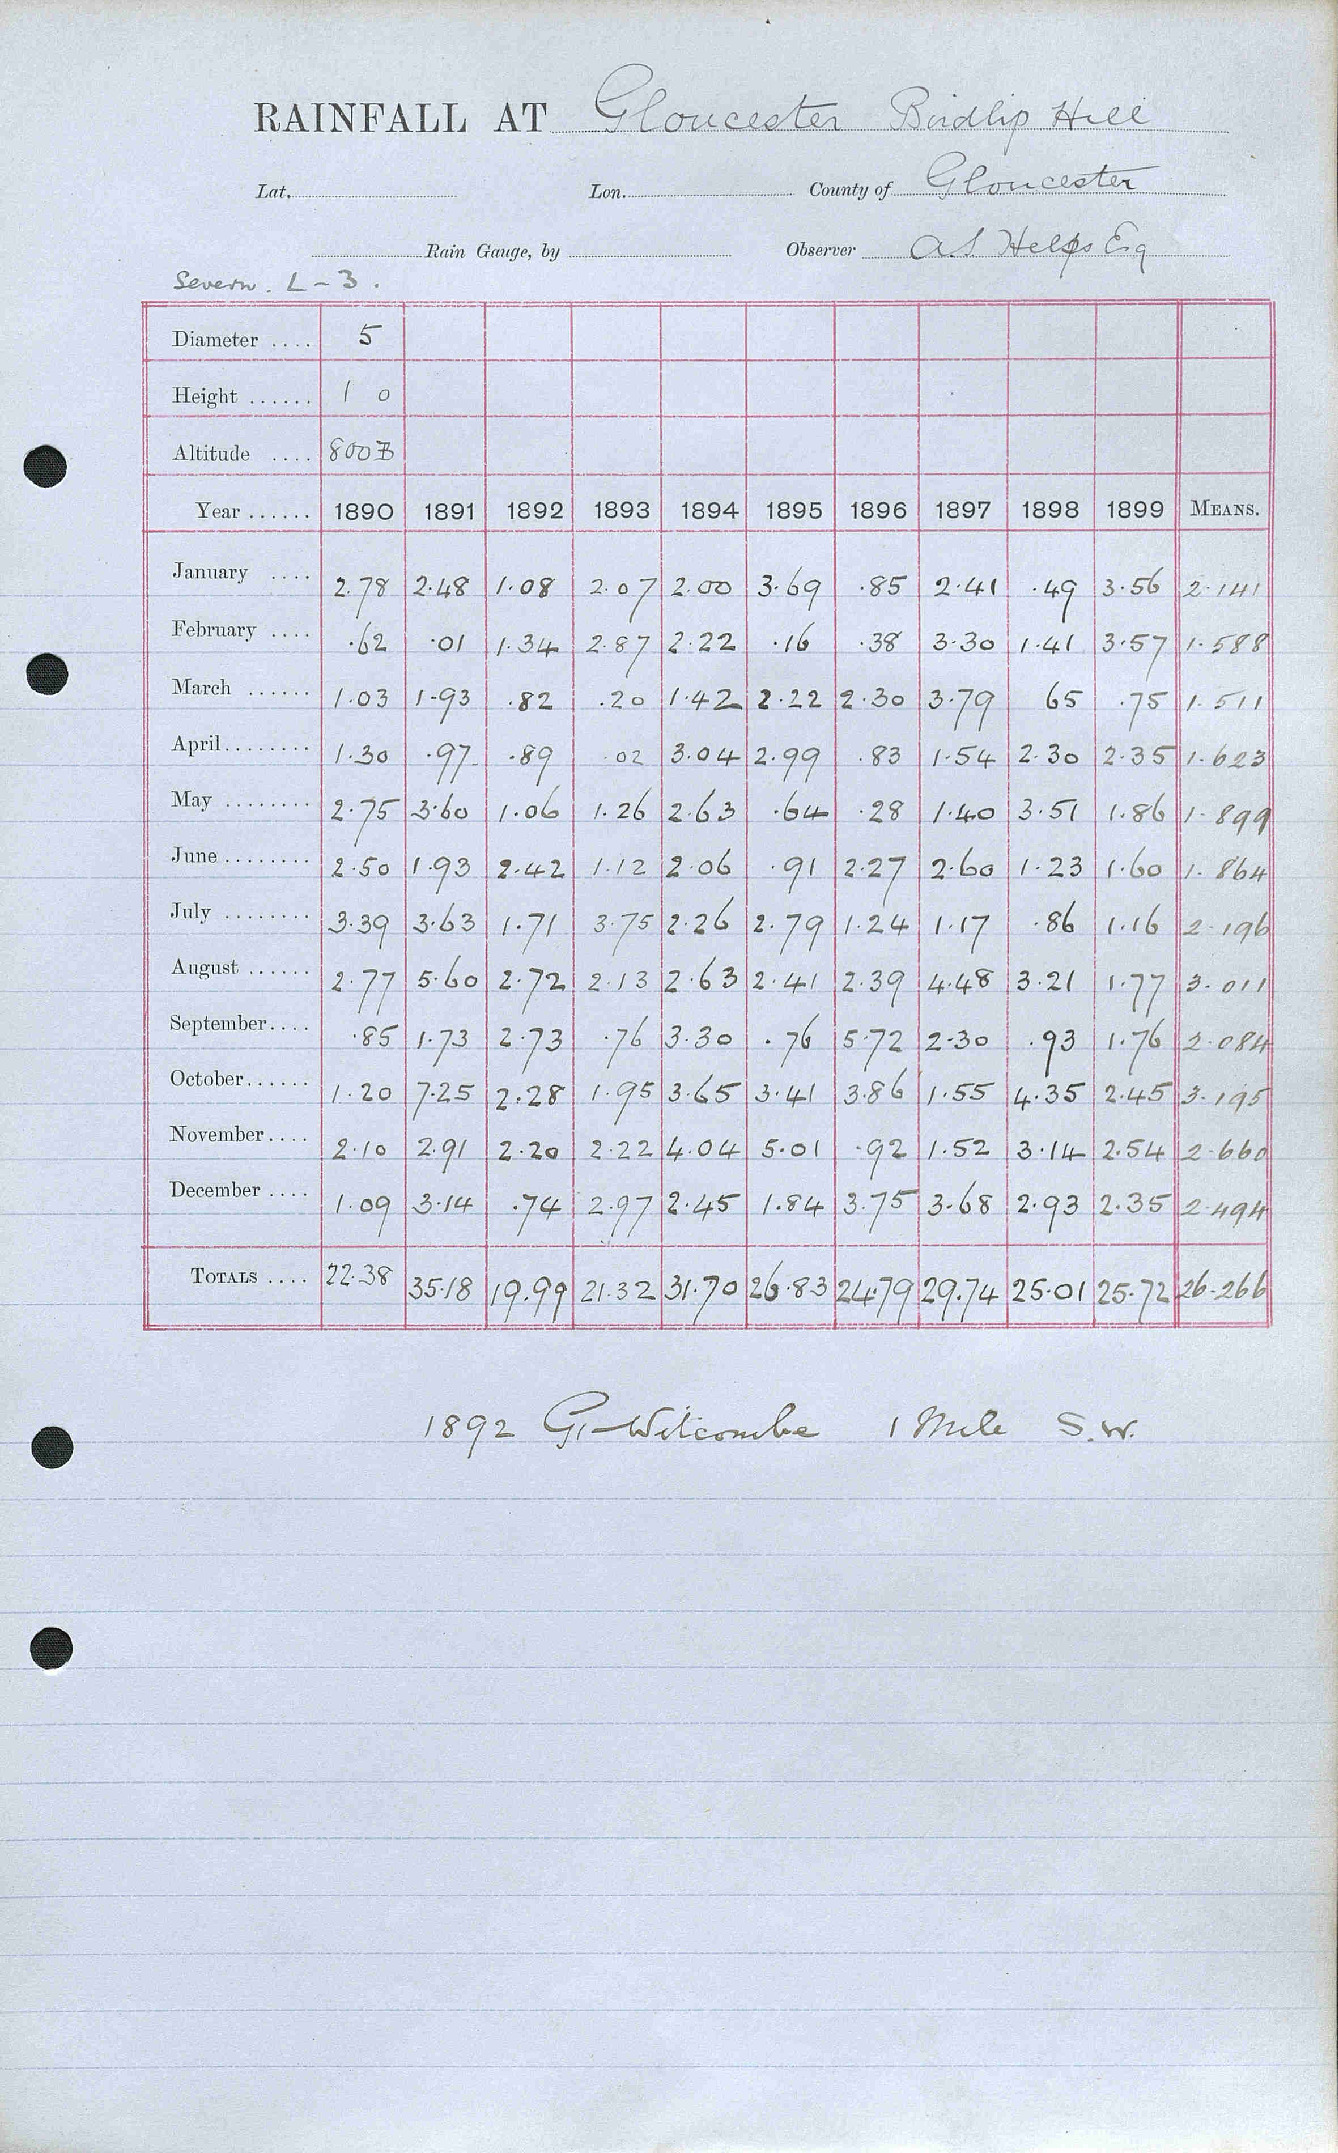 RAINFALL AT Gloucester Birdlip Hill
Lat. Lon. County of Gloucester
Rain Gauge, by Observer A S Helps Esq
Severn. L - 3.
Diameter .... 5
Height ...... 1 0
Altitude .... 800 B
Year ...... 1890 1891 1892 1893 1894 1895 1896 1897 1898 1899 MEANS.
January .... 2.78 2.48 1.08 2.07 2.00 3.69 .85 2.41 .49 3.56 2.141
February .... .62 .01 1.34 2.87 2.22 .16 .38 3.30 1.41 3.57 1.588
March ...... 1.03 1.93 .82 .20 1.42 2.22 2.30 3.79 65 .75 1.511
April........ 1.30 .97 .89 .02 3.04 2.99 .83 1.54 2.30 2.35 1.623
May ........ 2.75 3.60 1.06 1.26 2.63 .64 .28 1.40 3.51 1.86 1.899
June ........ 2.50 1.93 2.42 1.12 2.06 .91 2.27 2.60 1.23 1.60 1.864
July ........ 3.39 3.63 1.71 3.75 2.26 2.79 1.24 1.17 .86 1.16 2.196
August ...... 2.77 5.60 2.72 2.13 2.63 2.41 2.39 4.48 3.21 1.77 3.011
September.... .85 1.73 2.73 .76 3.30 .76 5.72 2.30 .93 1.76 2.084
October...... 1.20 7.25 2.28 1.95 3.65 3.41 3.86 1.55 4.35 2.45 3.195
November.... 2.10 2.91 2.20 2.22 4.04 5.01 .92 1.52 3.14 2.54 2.660
December .... 1.09 3.14 .74 2.97 2.45 1.84 3.75 3.68 2.93 2.35 2.494
TOTALS .... 22.38 35.18 19.99 21.32 31.70 26.83 24.79 29.74 25.01 25.72 26.266
1892 Gt Witcombe 1 Mile S.W.